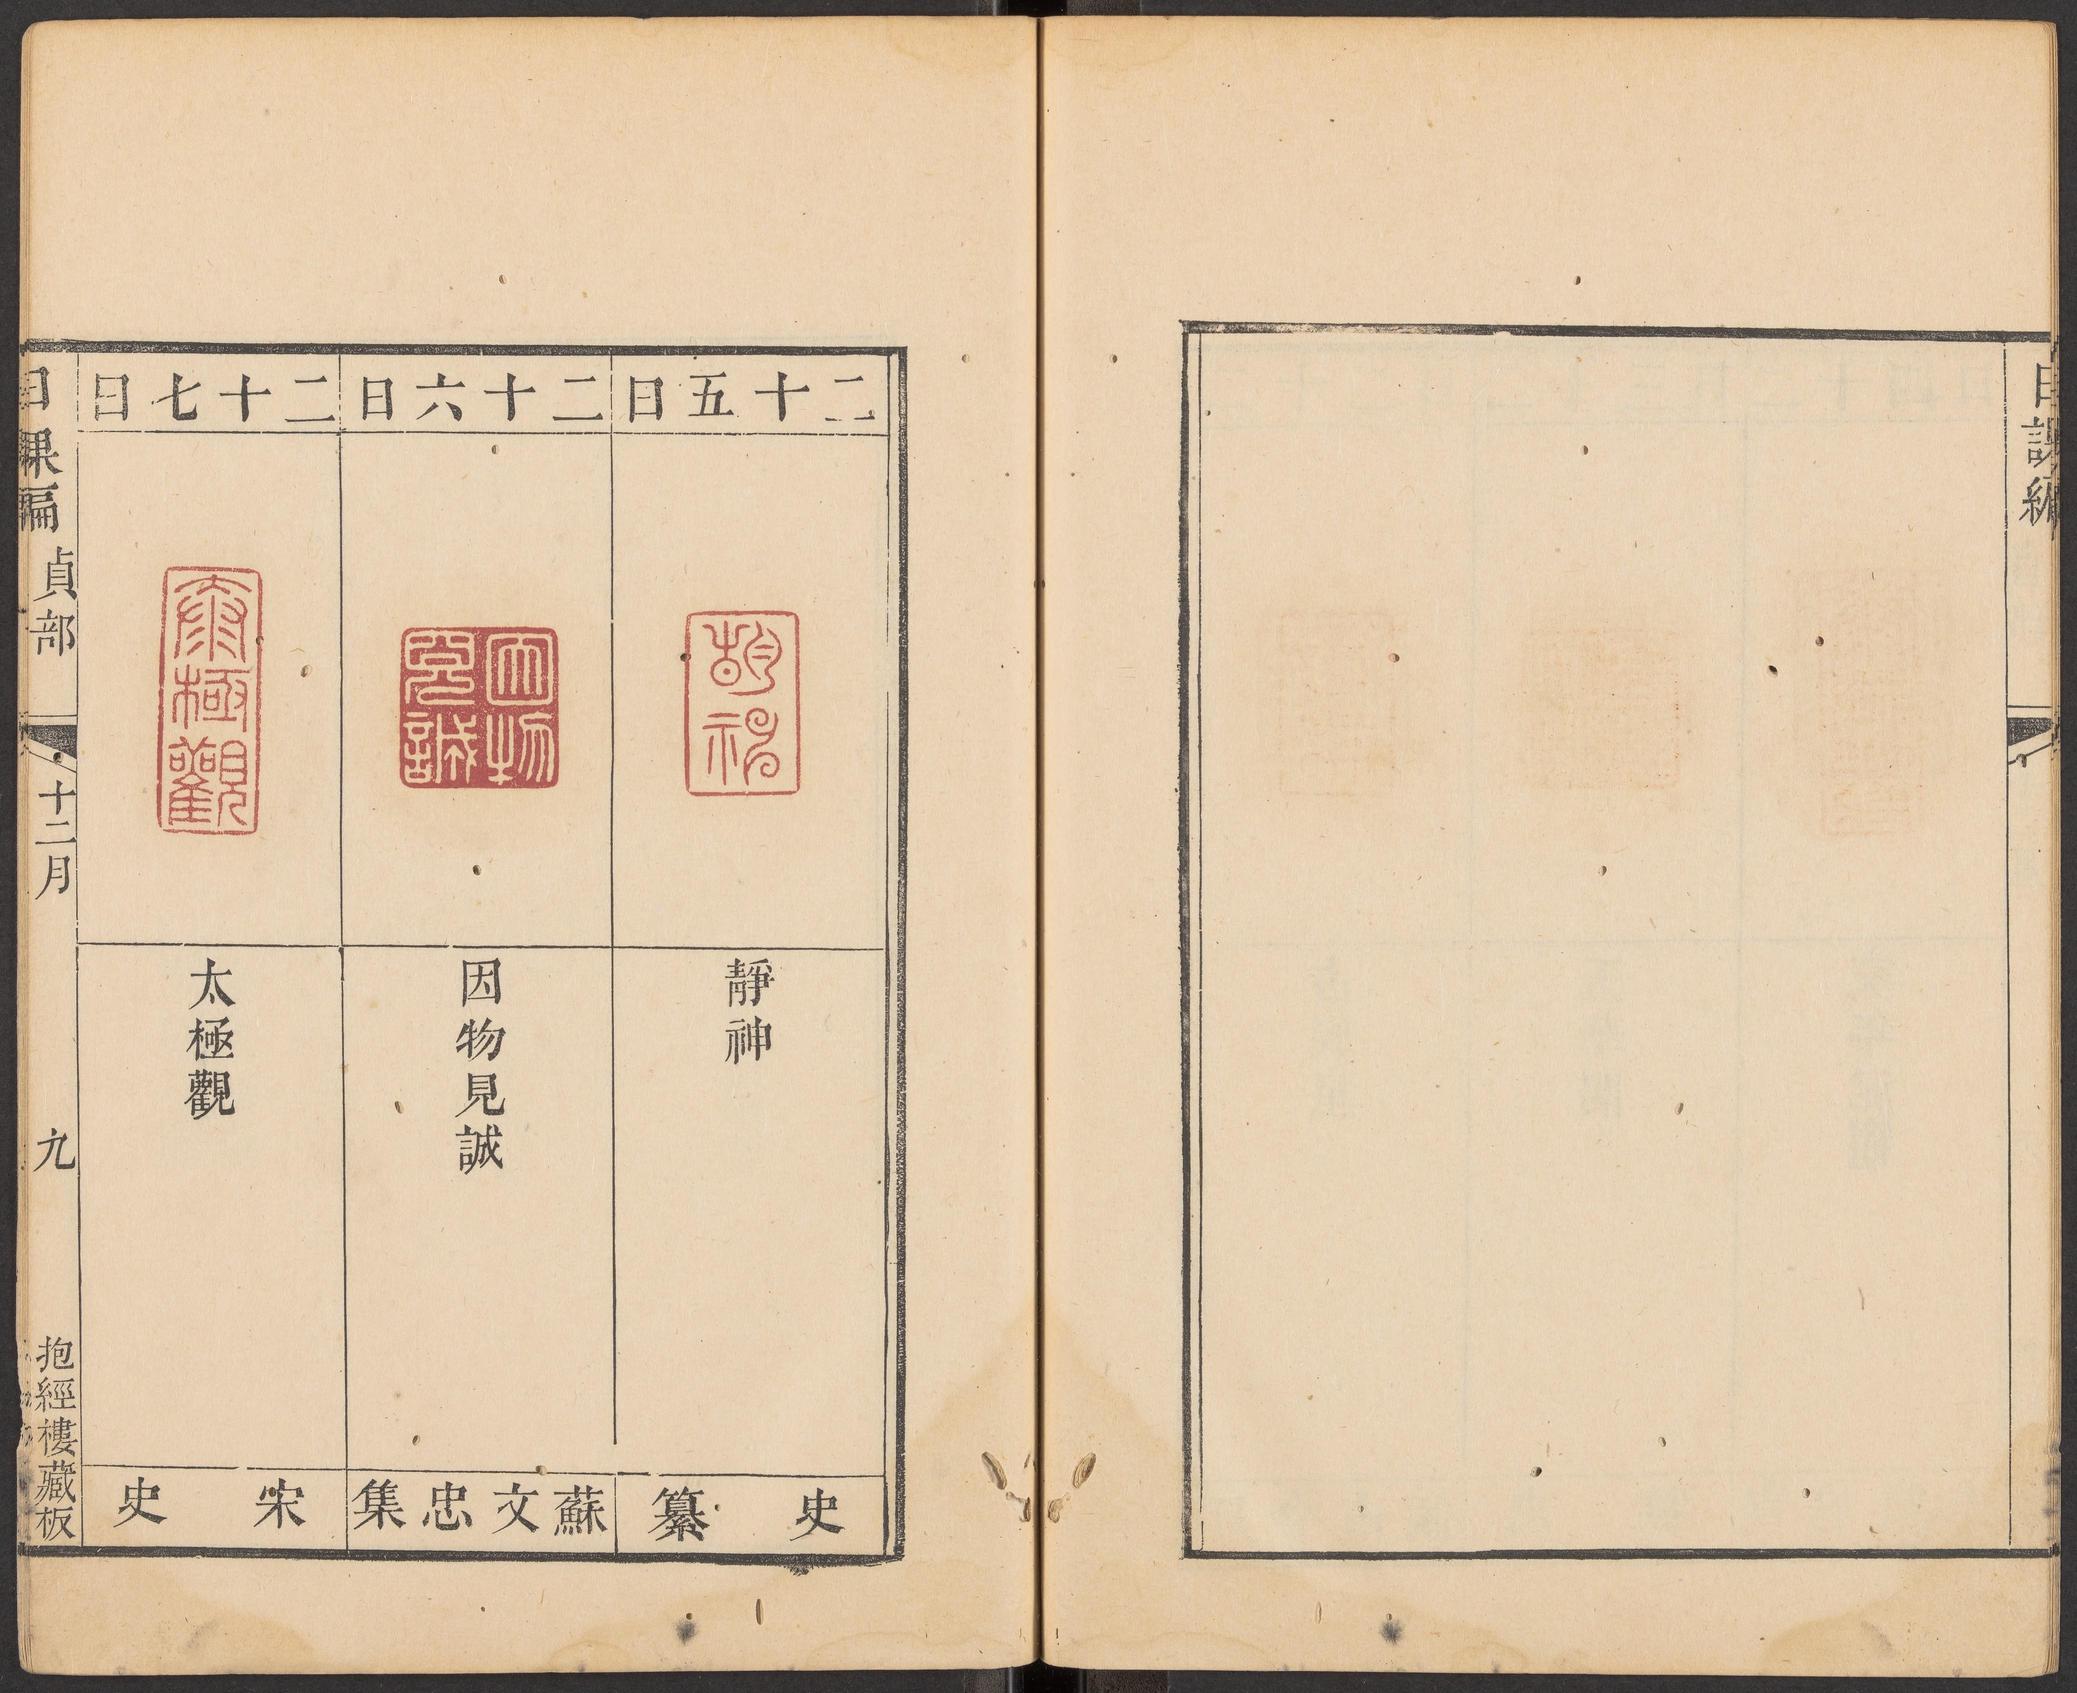 日課編
二十五日
靜神
史纂
二十六日
因物見誠
蘇文忠集
二十七日
太極觀
宋史
日課編 貞部
十二月
九
抱經樓藏板